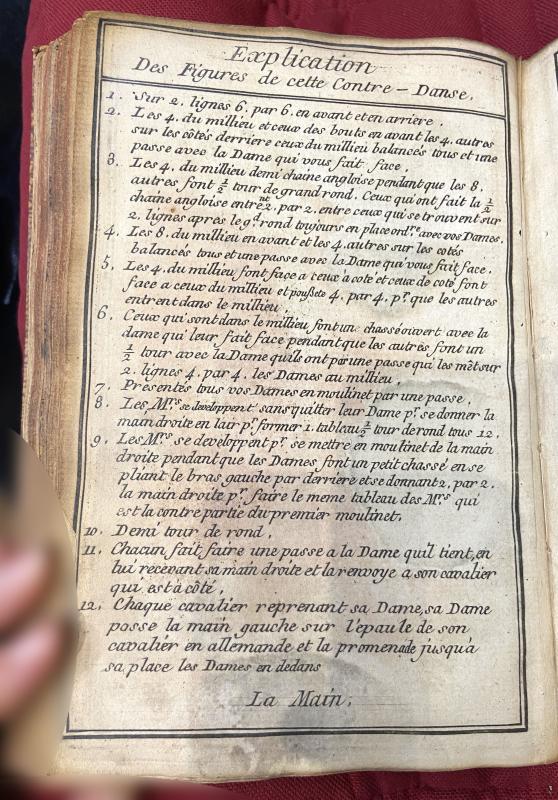 Explication
Des Figures de cette Contre-Danse.
1. Sur 2. lignes 6. par 6. en avant et en arriere.
2. Les 4. du millieu et ceux des bouts en avant les 4. autres
sur les côtés derriere ceux du millieu balancés tous et une
passe avec la Dame qui vous fait face.
3. Les 4. du millieu demi chaine angloise pendant que les 8.
autres font ½ tour de grand rond. Ceux qui ont fait la ½
chaine angloise entrent 2. par 2. entre ceux qui se trouvent sur
2. lignes après le gd rond toujours en place ordre. avec vos Dames.
4. Les 8. du millieu en avant et les 4. autres sur les cotés
balancés tous et une passe avec la Dame qui vous fait face.
5. Les 4. du millieu font face a ceux a coté et ceux de coté font
face a ceux du millieu et poussete 4. par 4. pr. que les autres
entrent dans le millieu.
6. Ceux qui sont dans le millieu font un chassé ouvert avec la
dame qui leur fait face pendant que les autres font un
½ tour avec la Dame quils ont par une passe qui les mèt sur
2. lignes 4. par 4. les Dames au millieu.
7. Presentés tous vos Dames en moulinet par une passe.
8. Les Mrs. se developpent sans quitter leur Dame pr. se donner la
main droite en lair pr. former 1. tableau ½ tour de rond tous 12.
9. Les Mrs. se developent pr. se mettre en moulinet de la main
droite pendant que les Dames font un petit chassé en se
pliant le bras gauche par derriere et se donnant 2. par 2.
la main droite pr. faire le meme tableau des Mrs. qui
est la contre partie du premier moulinet.
10. Demi tour de rond.
11. Chacun fait faire une passe a la Dame quil tient, en
lui recevant sa main droite et la renvoye a son cavalier
qui est à côté.
12. Chaque cavalier reprenant sa Dame, sa Dame
passe la main gauche sur l'epaule de son
cavalier en allemande et la promenade jusqu'a
sa place les Dames en dedans
La Main.